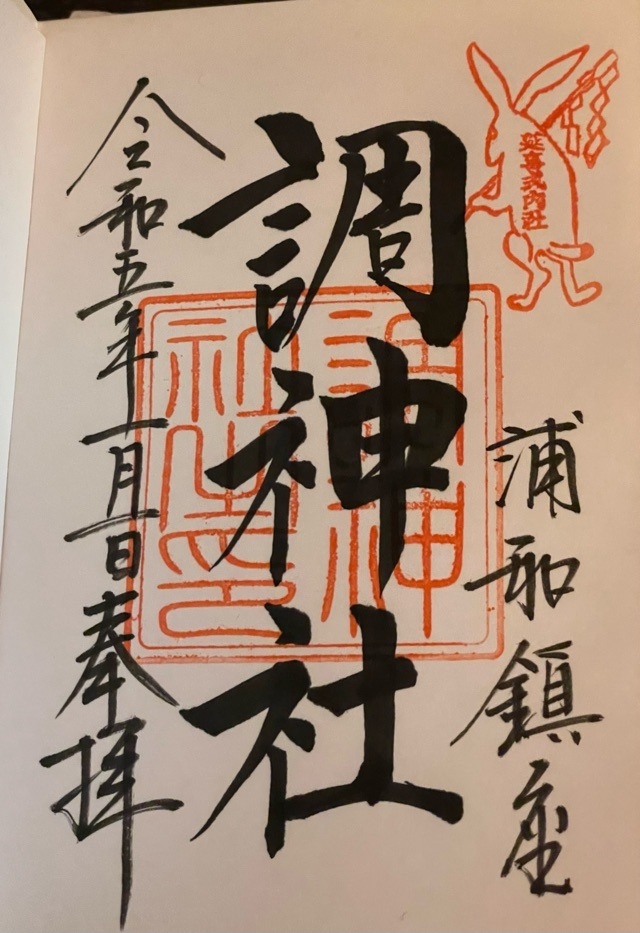 延喜式内社
浦和鎮座
調神社
調神社之印
令和五年一月一日奉拝